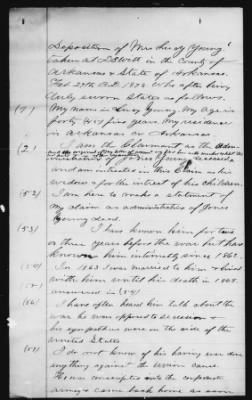 Deposition of Mrs Lucy Young
taken at DeWitt in the County of
Arkansas & State of Arkansas.
Feb 27th 1873 who after being
duly sworn States as follows.
(1) My name is Lucy Young. My age is
forty (40) five years. My residence
is Arkansas Co Arkansas.
(2) I am the Claimant as the Adm
of Jones Young deceased
and am interested in this Claim as his
widow & for the interest of his children.
(52) I am here to make a statement of
my claim as administratrix of Jones
Young decd.
(53) I have known him for two
or three years before the war but have
known him intimately since 1862.
(54) In 1863 I was married to him & lived
with him until his death in 1868.
(55) answered (54)
(56) I have often heard him talk about the
war he was opposed to secession &
his sympathies were on the side of the
United States
(57) I do not know of his having ever done
anything against the Union cause.
He was conscripted into the confederate
army & came back home as soon